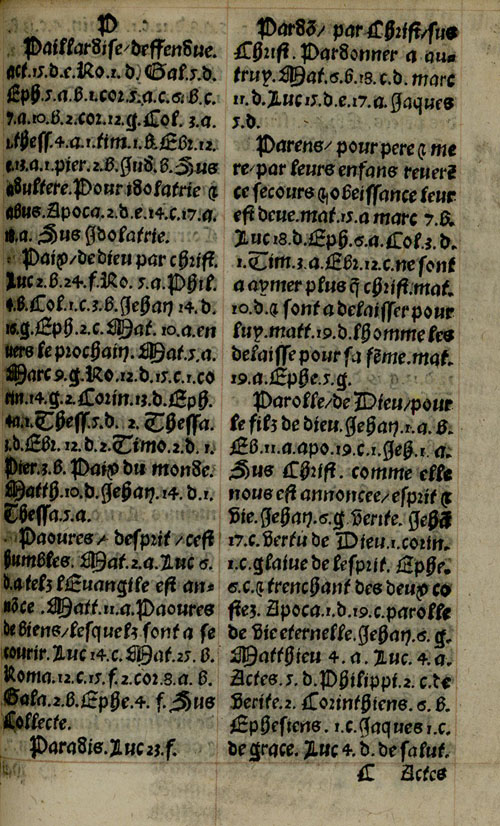 P
Paillardise/deffendue.
act.15.d.e.Ro.1.d. Gal.5.d.
Eph.5.a.b.1.cor.5.a.c.6.b.c.
7.a.10.b.2.cor.12.g.Col. 3.a.
1.thess.4.a.1.tim.1.b.Ebr.12.
e.13.a.1.pier.2.b.Jud.b. Sus
adultere. Pour idolatrie ⁊
abus. Apoca.2.d.e.14.c.17.a.
18.a. Sus Idolatrie.
Paix/ de dieu par christ.
Luc 2.b.24.f.Ro. 5.a.Phil.
4.b.Col.1.c.3.b.Jehan 14.d.
16.g.Eph.2.c.Mat. 10.a.en
uers le prochain. Mat.5.a.
Marc 9.g.Ro.12.d.15.c.1.co
rin.14.g.2.Corin.13.d.Eph.
4a.1.Thess.5.d. 2. Thessa.
3.d.Ebr. 12.d.2.Timo.2.d. 1.
Pier.3.b. Paix du monde.
Matth.10.d.Jehan.14. d.1.
Thessa.5.a.
Paoures/ desprit/cest
humbles. Mat.2.a.Luc 6.
d.a telz lEuangile est an-
nõce .Matt.11.a.Paoures
de biens/lesquelz sont a se
courir. Luc 14.c. Mat.25. d.
Roma.12.c.15.f.2.cor.8.a.b.
Gala.2.b.Ephe.4. f. Sus
Collecte.
Paradis. Luc 23.f.
Pardõ/ par Christ/sus
Christ. Pardonner a au-
truy. Mat.6.b.18.c.d. marc
11.d.Luc 15.d.e.17.a. Jaques
5.d.
Parens/ pour pere ⁊ me
re/par leurs enfans reuerẽ
ce secours ⁊ obeissance leur
est deue.mat.15.a marc 7.b.
Luc 18.d.Eph.6.a.Col.3.d.
1.Tim.3.a.Ebr.12.c.ne sont
a aymer plus q̃ christ.mat.
10.d.⁊ sont a delaisser pour
luy.matt.19.d.lhomme les
delaisse pour sa fẽme.mat.
19.a.Ephe.5.g.
Parolle/de Dieu/pour
le filz de dieu.Jehan.1.a.b.
Eb.11.a.apo.19.c.1.Jeh.1.a.
Sus Christ. comme elle
nous est annoncee/esprit ⁊
vie.Jehan.6.g.verite. Jehã
17.c.vertu de Dieu.1.corin.
1.c.glaiue de lesprit. Ephe.
6.c.⁊ trenchant des deux co
stez. Apoca.1.d.19.c.parolle
de vie eternelle.Jehan.6.g.
Matthieu 4. a. Luc. 4. a.
Actes. 5. d.Philippi.2. c.de
verite.2. Corinthiens. 6. b.
Ephesiens. 1.c.Jaques 1.c.
de grace. Luc 4. d.de salut.
C Actes